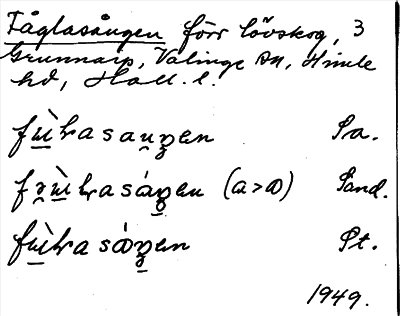 Fåglasången förr lövskog, 3
Grunnarp, Valinge sn, Himle
hd, Hall. l.
fɯ̀ɽasauŋen Sa.
fəɯ̀ɽasáŋen (a>ɒ) Sand.
fɯ̀ɽasɒ́ŋen Pt.
1949.